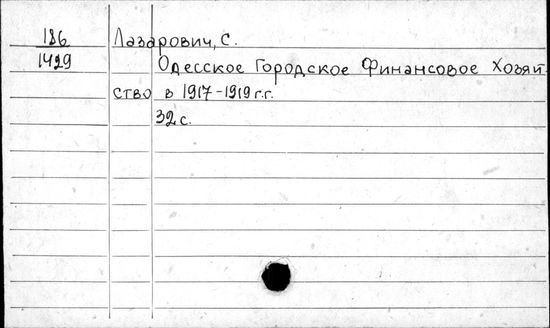 186 Лазарович, С.
1429 Одесское Городское Финансовое Хозяй-
ство в 1917-1919 г.г.
32 с.